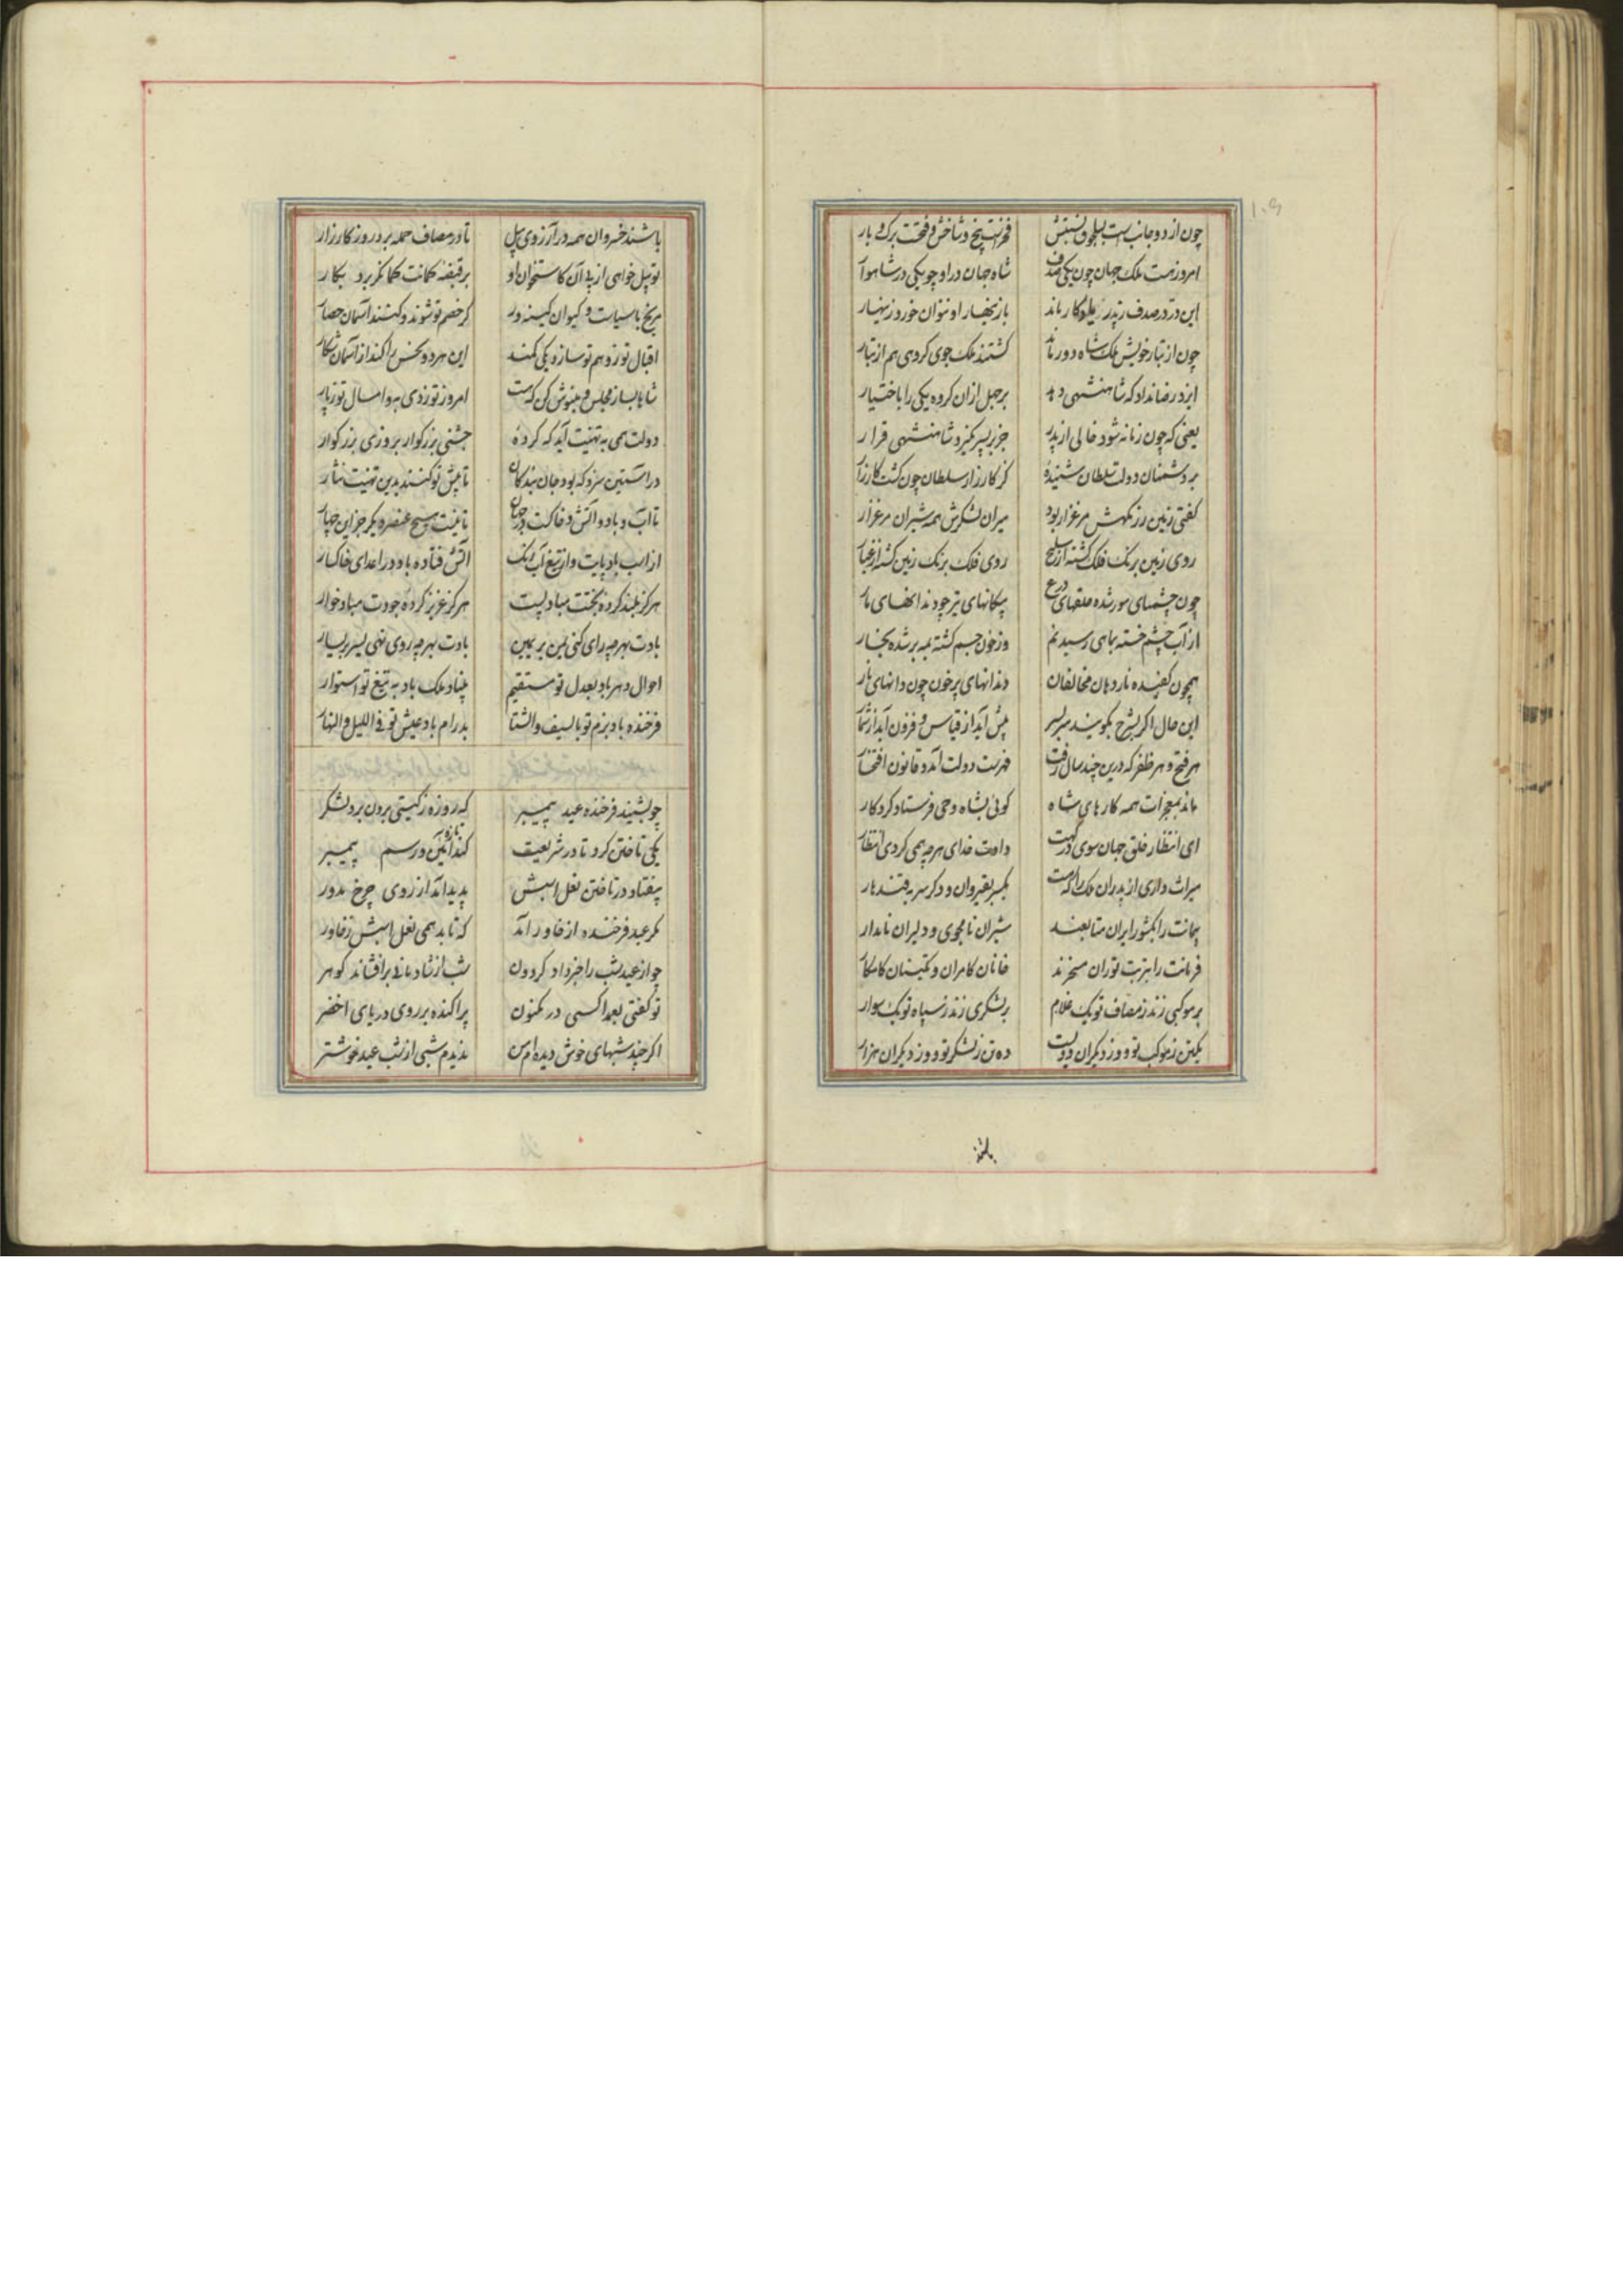 ۱۰۹
چون از دو جانب است بسلجوق نسبتش
فخرست بیخ و شاخش و فتحست برک و بار
امروز هست ملک جهان چون یکی صدف
شاه جهان در او چو یکی در شاهوار
این در در صدف ز پدر یادکار ماند
با زینهار او نتوان خورد زینهار
چون از تبار خویش ملک شاه دور ماند
کشتند ملک جوی کروهی هم از تبار
ایزد رضا نداد که شاهنشهی دهد
برجل ازان کروه یکی را باختیار
یعنی که چون زمانه شود خالی از پدر
جز بر پسر نکیرد شاهنشهی قرار
بر دشمنان دولت سلطان شنیدهٔ
کز کارزار سلطان چون کشت کارزار
کفتی زمین رزمکهش مرغزار بود
میران لشکرش همه شیران مرغزار
روی زمین برنک فلک کشته از سلیح
روی فلک برنک زمین کشته از غبار
چون چشمهای مور شده حلقهای درع
پیکانهای تیر چو دندانهای مار
از آب چشم خسته بماهی رسید نم
وز خون جسم کشته بمه بر شده بخار
همچون کفیده نار دهان مخالفان
دندانهای پر خون چون دانهای نار
این حال اکر بشرح بکویند سربسر
بیش آید از قیاس و فزون آید از شمار
هر فتح و هر ظفر که درین چند سال رفت
فهرست دولت آمد و قانون افتخار
ماند بمعجزات همه کارهای شاه
کوئی بشاه وحی فرستاد کردکار
ای انتظار خلق جهان سوی درکهت
دادت خدای هرچه همی کردی انتظار
میراث داری از پدران ملک را که هست
یکسر بقیروان و دکر سر بقندهار
پیمانت را بکشور ایران متابعند
شیران نامجوی و دلیران نامدار
فرمانت را بتربت توران مسخرند
خانان کامران و تکینان کامکار
بر موکبی زند ز مصاف تو یک غلام
بر لشکری زند ز سپاه تو یک سوار
یکتن ز موکب تو و وز دیکران دویست
ده تن ز لشکر تو و وز دیکران هزار
باشند
باشند خسروان همه در آرزوی پیل
تا در مصاف حمله برد روز کارزار
تو پیل خواهی از پی آن کاستخوان او
بر قبضهٔ کمانت کمانکر برد بکار
مریخ با سیاست و کیوان کینه ور
کر خصم تو شوند و کنند آسمان حصار
اقبال تو زوهم تو سازد یکی کمند
این هر دو نحس را کند از آسمان شکار
شاها بساز مجلس و می نوش کن که هست
امروز تو ز دی به و امسال تو ز پار
دولت همی به تهنیت آید که کردهٔ
جشنی بزرکوار بروزی بزرکوار
در آستین سزد که بود جان بندکان
تا پیش تو کنند بدین تهنیت نثار
تا آب و باد و آتش و خاکست در جهان
تا نیست هیچ عنصر دیکر جز این چهار
از اسب باد پایت و از تیغ آب رنک
آتش فتاده باد در اعدای خاکسار
هرکز بلند کرده بختت مباد پست
هرکز عزیز کرده جودت مباد خوار
بادت بهرچه رای کنی یمن بر یمین
بادت بهرچه روی نهی یسر بر یسار
احوال دهر باد بعدل تو مستقیم
بنیاد ملک باد به تیغ تو استوار
فرخنده باد بزم تو بالسیف و الشتا
پدرام باد عیش تو فی اللیل و النهار
چو بشنید فرخنده عید پیمبر
که روزه ز کیتی برون برد لشکر
یکی تاختن کرد تا در شریعت
کند تازه آئین و رسم پیمبر
بیفتاد در تاختن نعل اسبش
پدید آمد از روی چرخ مدور
مکر عید فرخنده از خاور آمد
که تابد همی نعل اسبش ز خاور
چو از عید شب را خبر داد کردون
شب از شادمانی برافشاند کوهر
تو کفتی بعمدا کسی در مکنون
پراکنده بر روی دریای اخضر
اکر چند شبهای خوش دیده ام من
ندیدم شبی از شب عید خوشتر